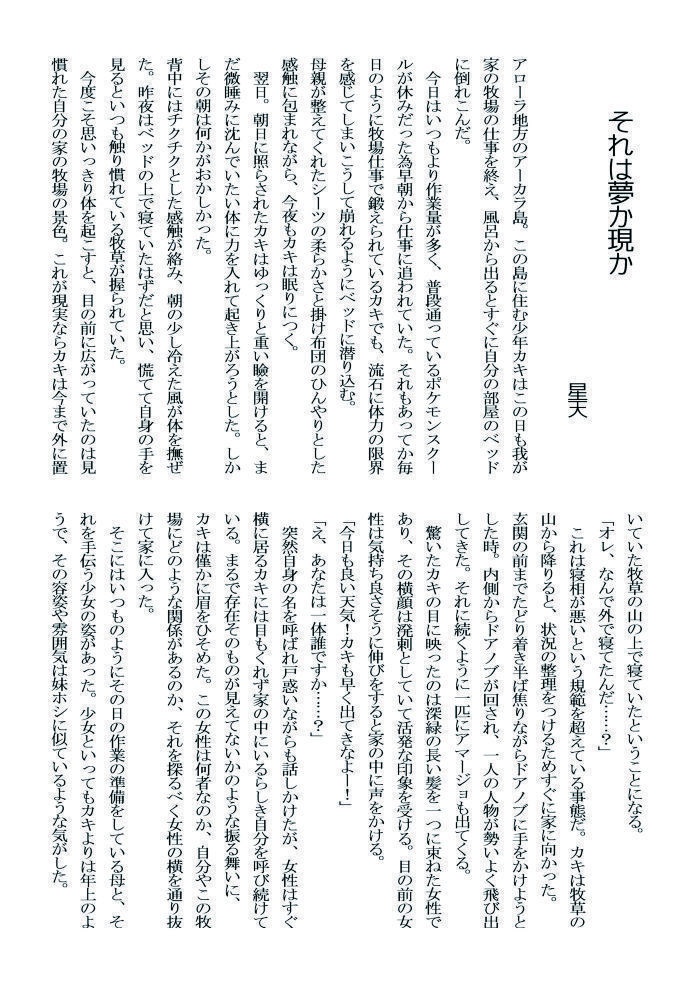 それは夢か現か
星天
アローラ地方のアーカラ島。この島に住む少年カキはこの日も我が
家の牧場の仕事を終え、風呂から出るとすぐに自分の部屋のベッド
に倒れこんだ。
今日はいつもより作業量が多く、普段通っているポケモンスクー
ルが休みだった為早朝から仕事に追われていた。それもあってか毎
日のように牧場仕事で鍛えられているカキでも、流石に体力の限界
を感じてしまいこうして崩れるようにベッドに潜り込む。
母親が整えてくれたシーツの柔らかさと掛け布団のひんやりとした
感触に包まれながら、今夜もカキは眠りにつく。
翌日。朝日に照らされたカキはゆっくりと重い瞼を開けると、ま
だ微睡みに沈んでいたい体に力を入れて起き上がろうとした。しか
しその朝は何かがおかしかった。
背中にはチクチクとした感触が絡み、朝の少し冷えた風が体を撫ぜ
た。昨夜はベッドの上で寝ていたはずだと思い、慌てて自身の手を
見るといつも触り慣れている牧草が握られていた。
今度こそ思いっきり体を起こすと、目の前に広がっていたのは見
慣れた自分の家の牧場の景色。これが現実ならカキは今まで外に置
いていた牧草の山の上で寝ていたということになる。
「オレ、なんで外で寝てたんだ……？」
これは寝相が悪いという規範を超えている事態だ。カキは牧草の
山から降りると、状況の整理をつけるためすぐに家に向かった。
玄関の前までたどり着き半ば焦りながらドアノブに手をかけようと
した時。内側からドアノブが回され、一人の人物が勢いよく飛び出
してきた。それに続くように一匹にアマージョも出てくる。
驚いたカキの目に映ったのは深緑の長い髪を一つに束ねた女性で
あり、その横顔は溌剌としていて活発な印象を受ける。目の前の女
性は気持ち良さそうに伸びをすると家の中に声をかける。
「今日も良い天気！カキも早く出てきなよー！」
「え、あなたは一体誰ですか……？」
突然自身の名を呼ばれ戸惑いながらも話しかけたが、女性はすぐ
横に居るカキには目もくれず家の中にいるらしき自分を呼び続けて
いる。まるで存在そのものが見えてないかのような振る舞いに、
カキは僅かに眉をひそめた。この女性は何者なのか、自分やこの牧
場にどのような関係があるのか、それを探るべく女性の横を通り抜
けて家に入った。
そこにはいつものようにその日の作業の準備をしている母と、そ
れを手伝う少女の姿があった。少女といってもカキよりは年上のよ
うで、その容姿や雰囲気は妹ホシに似ているような気がした。